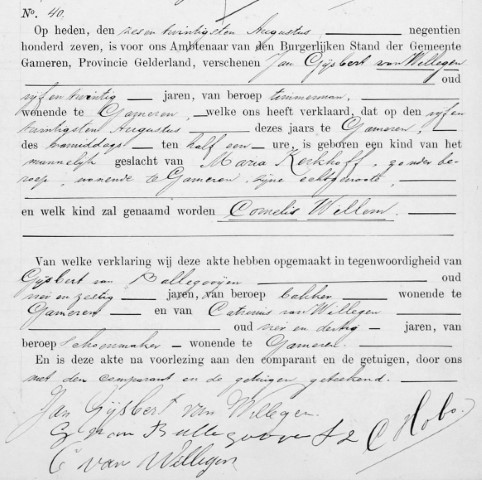 No. 40.
Op heden, den zes en twintigsten Augustus negentien
honderd zeven, is voor ons Ambtenaar van den Burgerlijken Stand der Gemeente
Gameren, Provincie Gelderland, verschenen Jan Gijsbert van Willegen
oud
vijf en twintig jaren, van beroep timmerman,
wonende te Gameren, welke ons heeft verklaard, dat op den vijf en
twintigsten Augustus dezes jaars te Gameren,
des namiddags ten half een ure, is geboren een kind van het
mannelijk geslacht van Maria Kerkhoff, zonder be-
roep, wonende te Gameren, zijne echtgenoote,
en welk kind zal genaamd worden Cornelis Willem.
Van welke verklaring wij deze akte hebben opgemaakt in tegenwoordigheid van
Gijsbert van Ballegooijen oud
en zestig jaren, van beroep bakker wonende te
Gameren en van van Willegen
oud en dertig jaren, van
beroep schoenmaker wonende te Gameren.
En is deze akte na voorlezing aan den comparant en de getuigen, door ons
met den comparant en de getuigen geteekend.
Jan Gijsbert van Willegen.
G van C Hobo.
C van Willegen